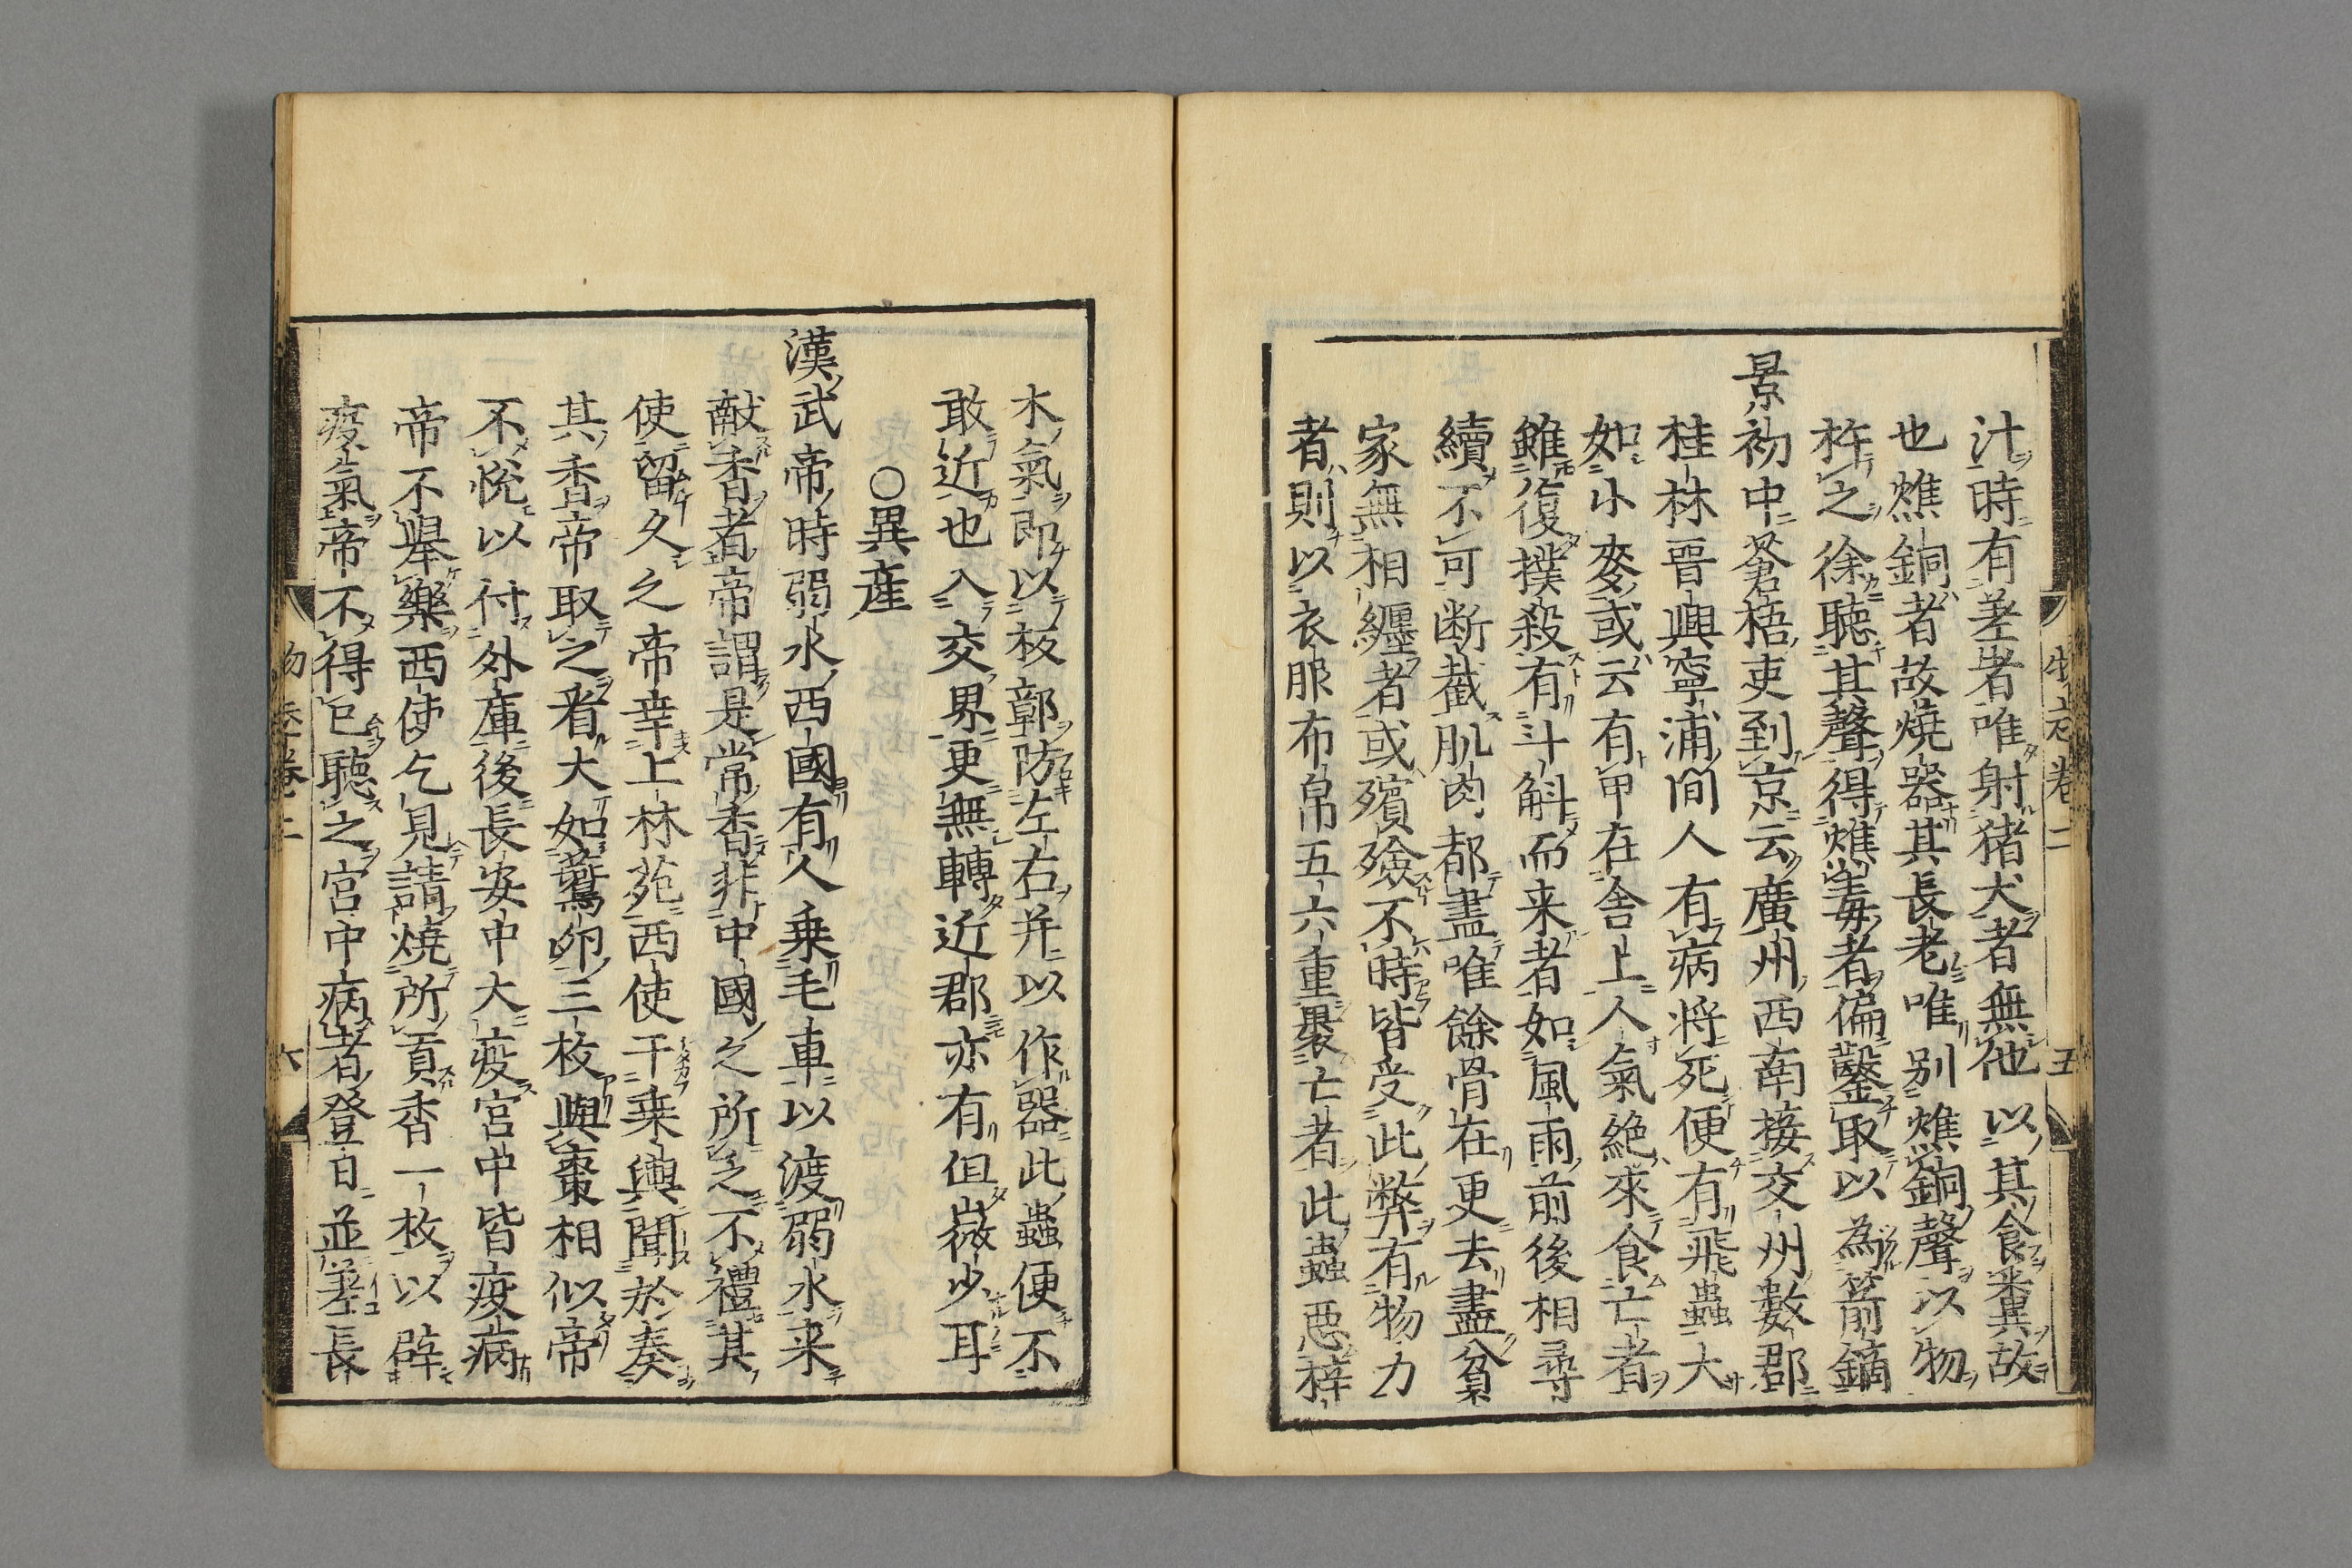 汁時有差者唯射猪犬者無他以其食糞故
也燋銅者故燒器其長老唯别燋銅聲以物
杵之徐聽其聲得燋毒者偏鑿取以為箭鏑
景初中蒼梧吏到京云廣州西南接交州數郡
桂林晋興寧浦間人有病將死便有飛蟲大
如小麥或云有甲在舍上人氣絶來食亡者
雖復撲殺有斗斛而来者如風雨前後相尋
續不可断截肌肉都盡唯餘骨在更去盡貧
家無相纏者或殯殮不時皆受此弊有物力
者則以衣服布帛五六重裹亡者此蟲惡梓
木氣即以板鄣防左右并以作器此蟲便不
敢近也入交界更無轉近郡亦有但微少耳
○異産
漢武帝時弱水西國有人乗毛車以渡弱水来
獻香者帝謂是常香非中國之所乏不禮其
使留久之帝幸上林苑西使干乗輿聞於奏
其香帝取之看大如鷰卵三枚與棗相似帝
不悅以付外庫後長安中大疫宮中皆疫病
帝不舉樂西使乞見請燒所貢香一枚以辟
疫氣帝不得已聽之宮中病者登日並差長
物志卷二
五
卷二
六